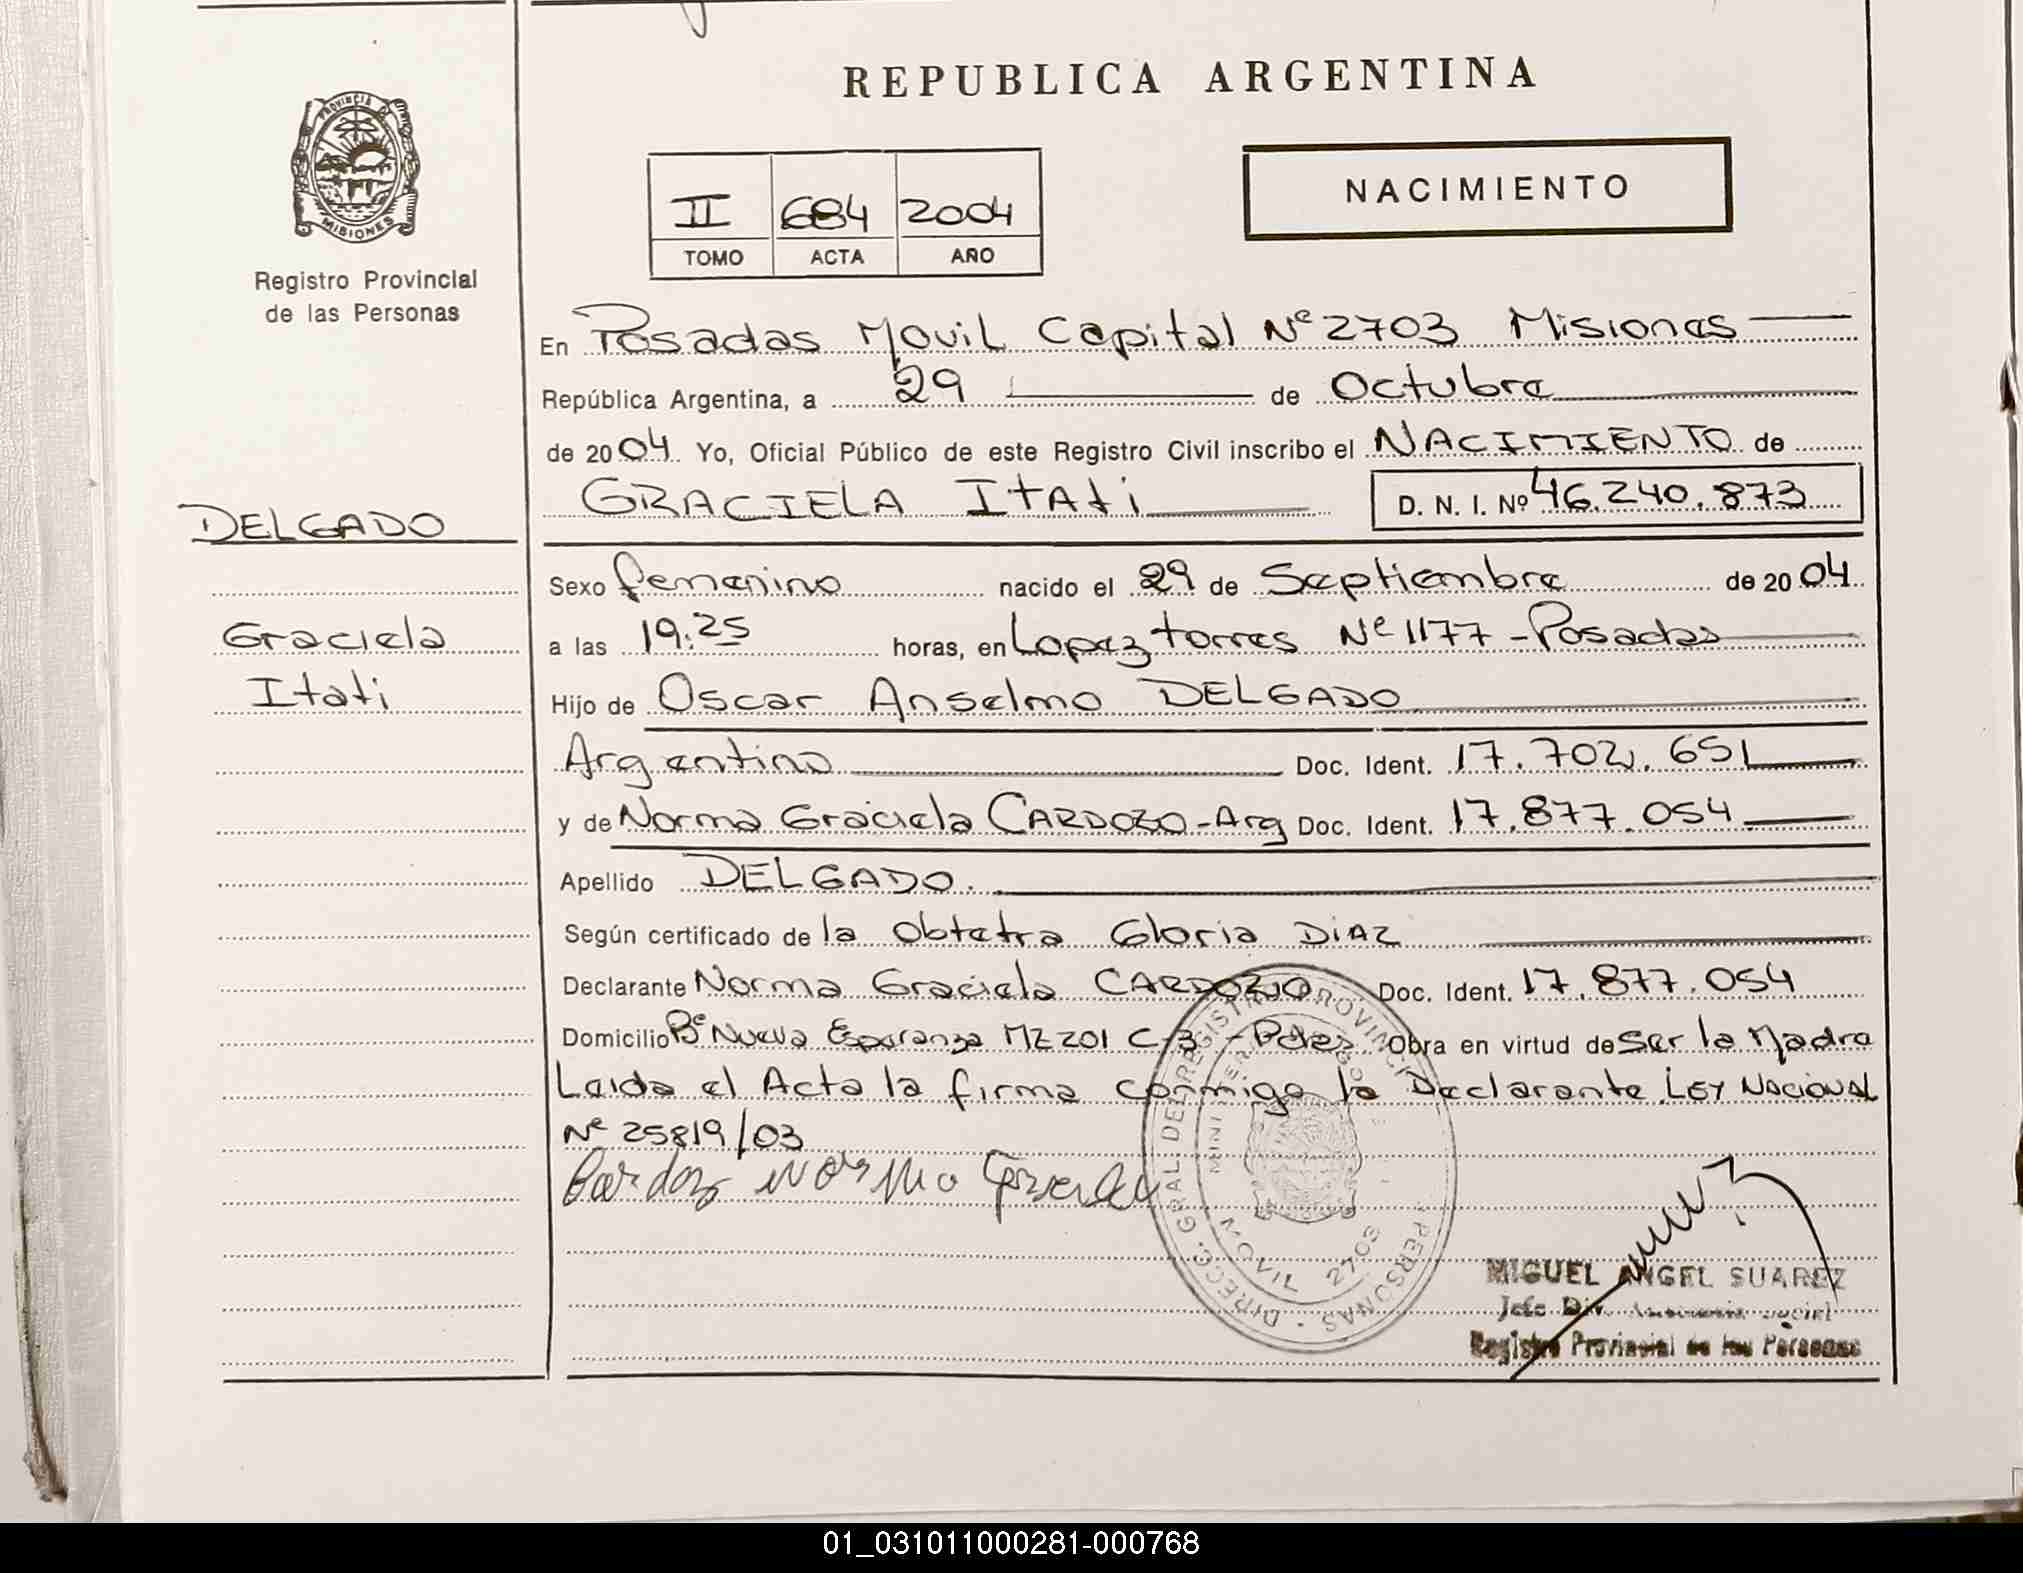 REPUBLICA ARGENTINA
PROVINCIA DE
MISIONES
Registro Provincial
de las Personas
NACIMIENTO
II 684 2004
TOMO ACTA AÑO
En Posadas Movil Capital Nº 2703 Misiones
República Argentina, a 29 de Octubre
de 2004 Yo, Oficial Público de este Registro Civil inscribo el NACIMIENTO de
GRACIELA ITATI D. N. I. Nº 46.240.873
DELGADO
Graciela
Itati
Sexo femenino nacido el 29 de Septiembre de 2004
a las 19:25 horas, en Lopez torres Nº 1177 - Posadas
Hijo de Oscar Anselmo DELGADO
Argentino Doc. Ident. 17.702.651
y de Norma Graciela CARDOZO - Arg Doc. Ident. 17.877.054
Apellido DELGADO.
Según certificado de la Obtetra Gloria DIAZ
Declarante Norma Graciela CARDOZO Doc. Ident. 17.877.054
Domicilio Bº Nueva Esperanza MZ 201 C-3 - Pdas Obra en virtud de ser la Madre
Leida el Acta la firma conmigo la Declarante Ley Nacional
Nº 25819/03
Cardozo Norma Graciela
DIRECC. GRAL DEL REGISTRO PROVINCIAL PERSONAS
MOVIL 2703
MIGUEL ANGEL SUAREZ
Jefe Div. Social
Registro Provincial de las Personas
01_031011000281-000768